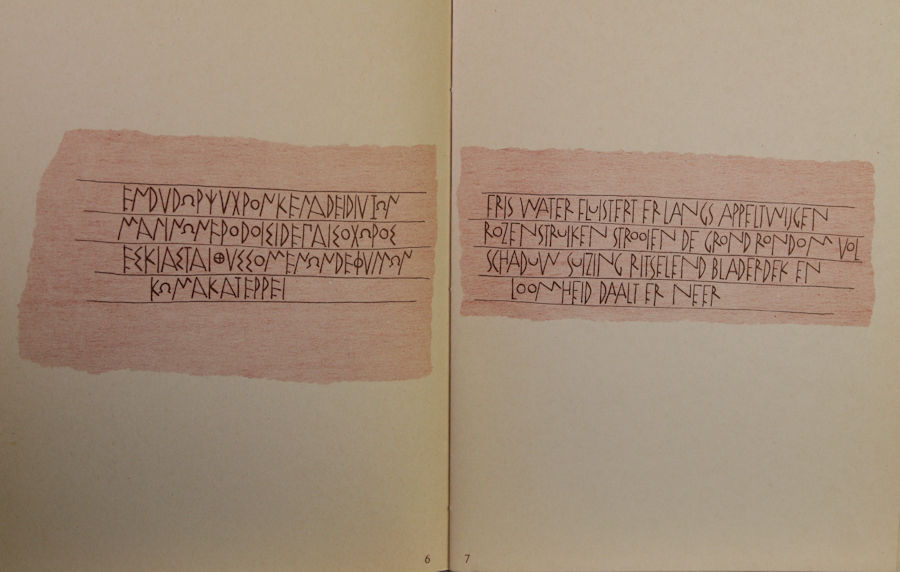 ΕΝΔΥΔΩΡΨΥΧΡΟΝΚΕΛΑΔΕΙΔΙΥΖΩΝ
ΜΑΛΙΝΩΝϜΡΟΔΟΙΣΙΔΕΠΑΙΣΟΧΩΡΟΣ
ΕΣΚΙΑΣΤΑΙΘΥΣΣΟΜΕΝΩΝΔΕΦΥΛΛΩΝ
ΚΩΜΑΚΑΤΕΡΡΕΙ
6
FRIS WATER FLUISTERT ER LANGS APPELTWIJGEN
ROZENSTRUIKEN STROOIEN DE GROND RONDOM VOL
SCHADUW SUIZING RITSELEND BLADERDEK EN
LOOMHEID DAALT ER NEER
7